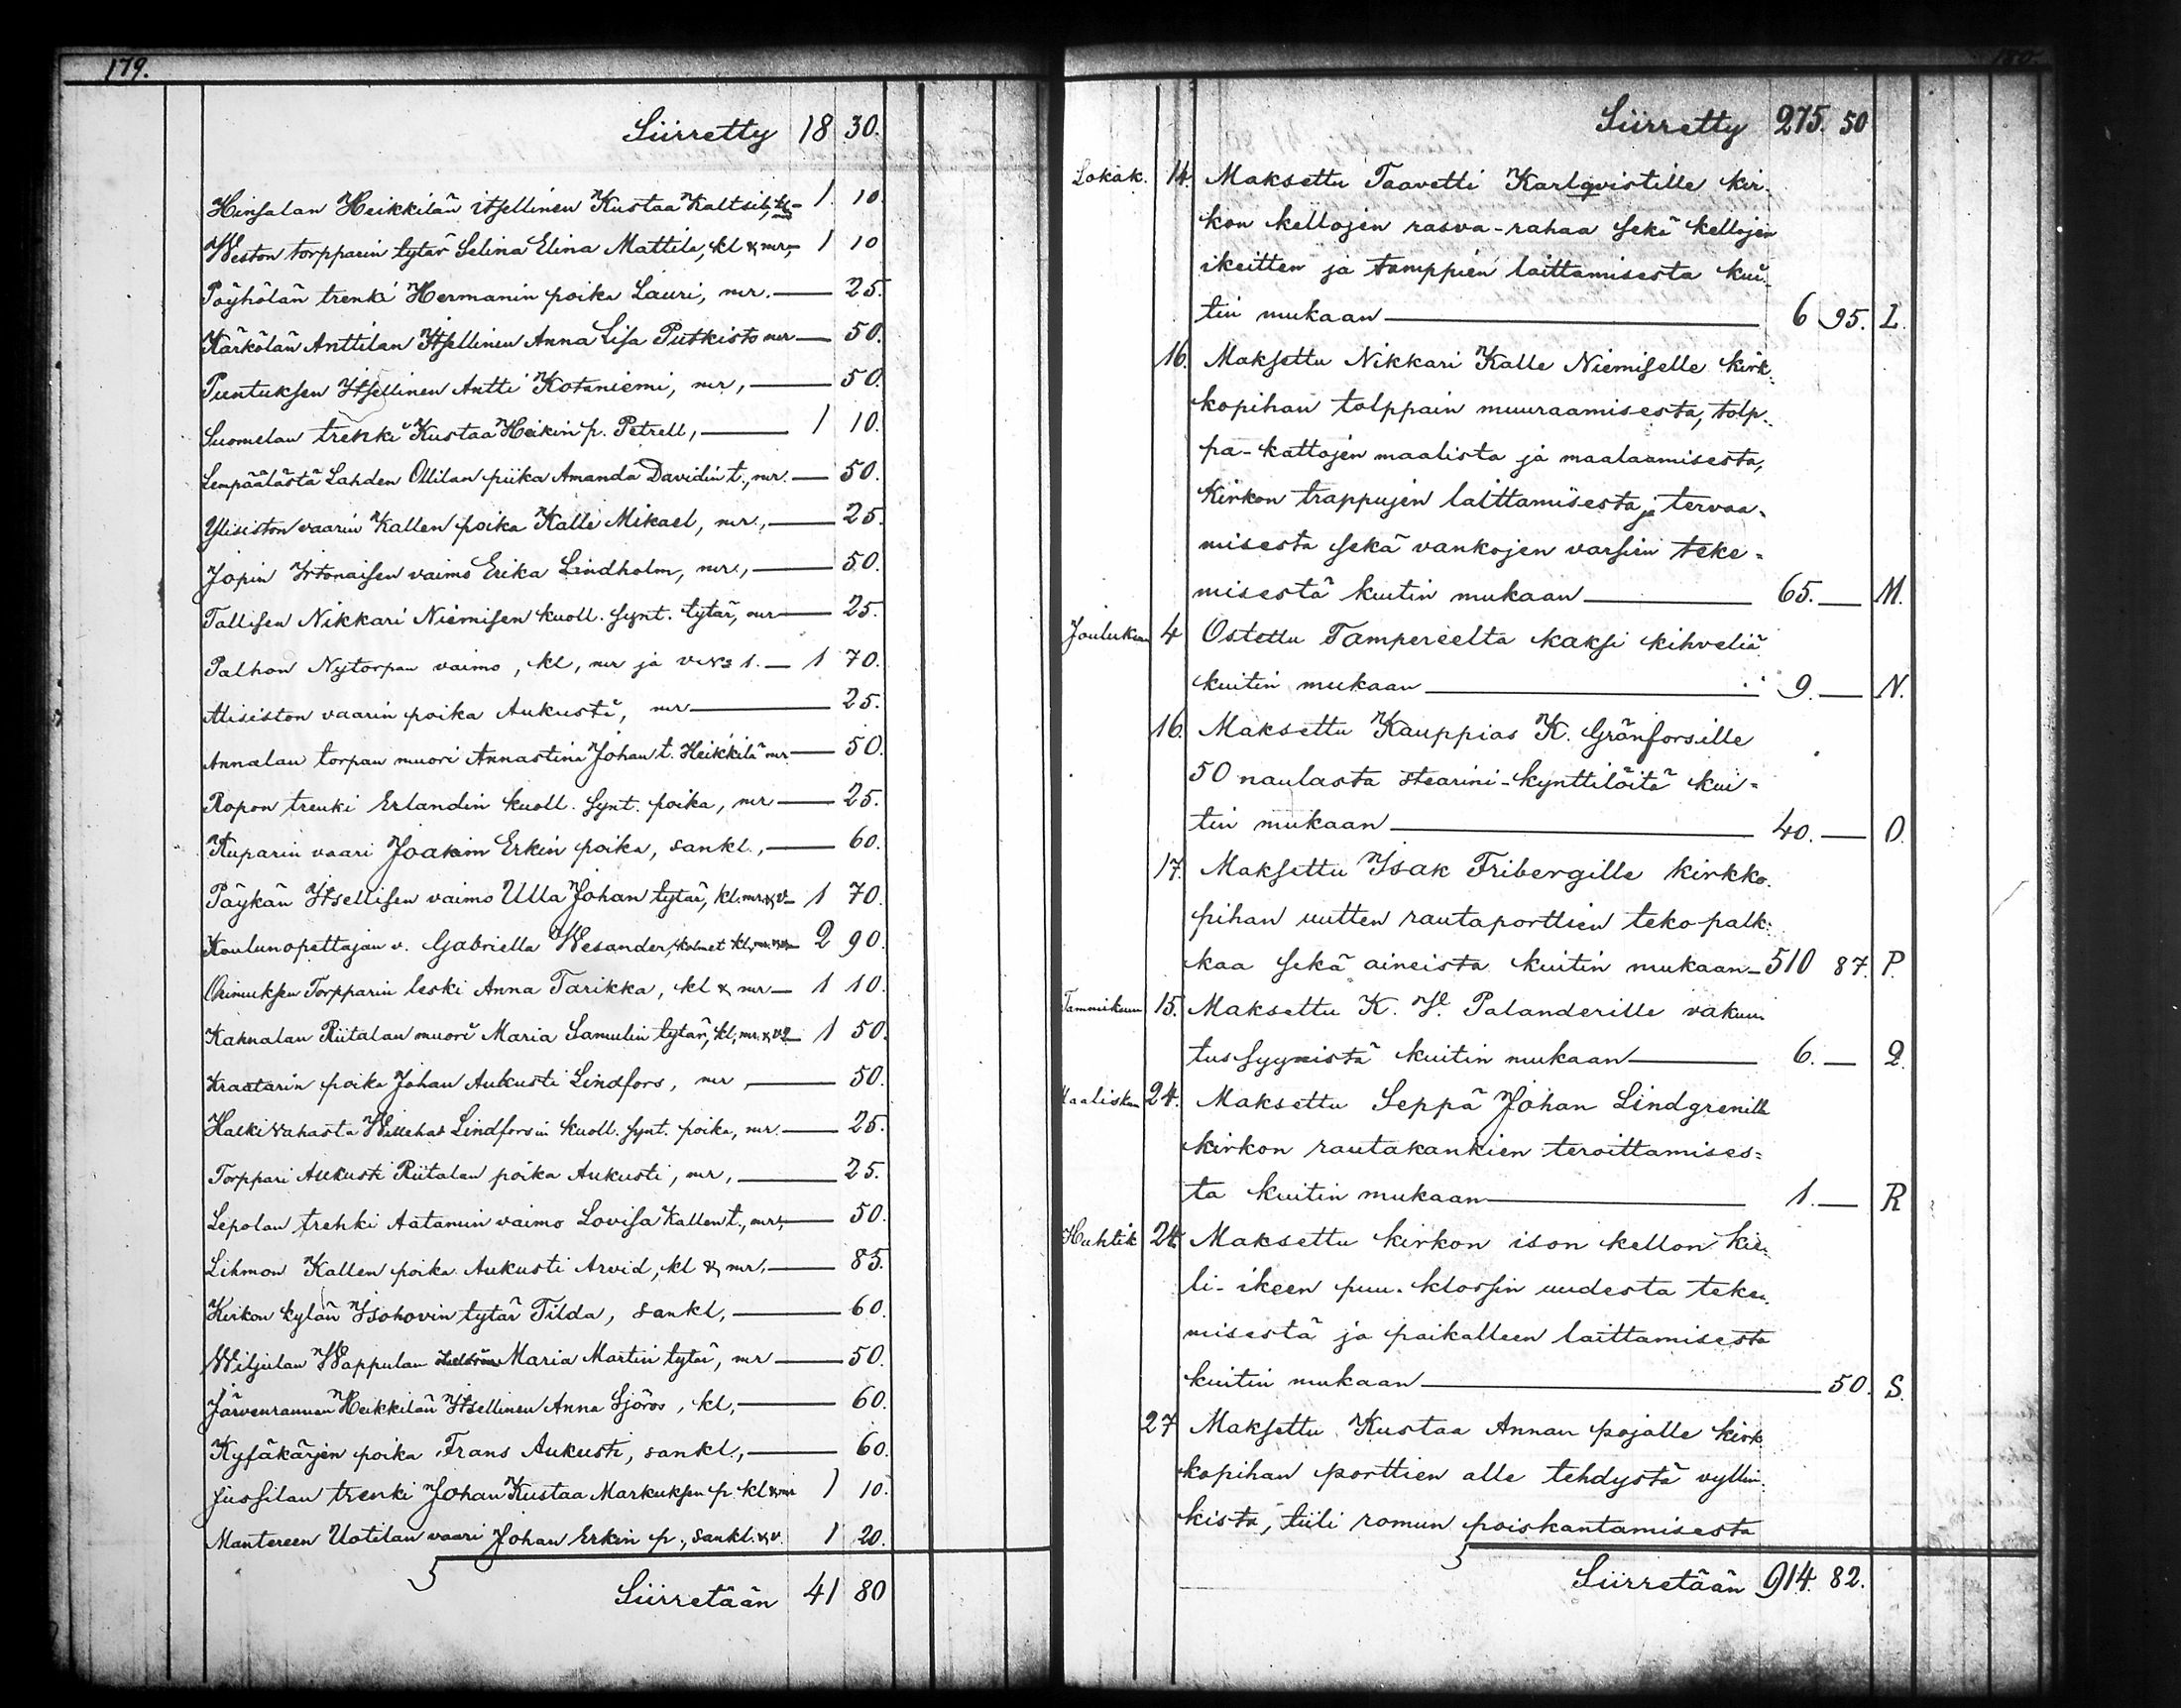 179.
Siirretty 18 30.
Hinsalan Heikkilän itsellinen Kustaa Kaltsila, kl 1. 10.
Weston torpparin tytär Selina Elina Mattila, kl & mr, 1 10
Pöyhölän trenki Hermanin poika Lauri, mr. — 25.
Kärkölän Anttilan Itsellinen Anna Lisa Putkisto mr — 50.
Puntuksen Itsellinen Antti Kotaniemi, mr, — 50.
Suomelan trenki Kustaa Heikin p. Petrell, — 1 10.
Lempäälästä Lahden Ollilan piika Amanda Davidin t., mr. — 50.
Yliseston vaarin Kallen poika Kalle Mikael, mr., — 25.
Jopin Irtonaisen vaimo Erika Lindholm, mr., — 50.
Tallisen Nikkari Niemisen kuoll. synt. tytär, mr — 25.
Palhon Nytorpan vaimo, kl, mr ja v. No 1. — 1 70.
Aliseston vaarin poika Aukusti, mr — 25.
Annalan torpan muori Annastina Johan t. Heikkilä mr. — 50.
Ropon trenki Erlandin kuoll. synt. poika, mr — 25.
Kuparin vaari Joakim Erkin poika, sankl., — 60.
Päykän Itsellisen vaimo Ulla Johan tytär, kl. mr. & v — 1 70.
Koulunopettajan v. Gabriella Wesander, kolmet kl, mr. 2 90.
Oximuksen Torpparin leski Anna Tarikka, kl & mr — 1 10.
Kahnalan Riitalan muori Maria Samulin tytär, kl, mr. & v 2 — 1 50.
Kraatarin poika Johan Aukusti Lindfors, mr, — 50.
Halkivahasta Willehad Lindforsin kuoll. synt. poika, mr. — 25.
Torppari Aukusti Riitalan poika Aukusti, mr, — 25.
Lepolan trenki Aatamin vaimo Lovisa Kallen t., mr, — 50.
Lihmon Kallen poika Aukusti Arvid, kl & mr. — 85.
Kirkon kylän Isohovin tytär Tilda, sankl, — 60.
Wiljulan Wappulan Maria Martin tytär, mr — 50.
Järvenrannan Heikkilän Itsellinen Anna Sjöros, kl, — 60.
Kysäkärjen poika Frans Aukusti, sankl., — 60.
Jussilan trenki Johan Kustaa Markuksen p. kl & mr 1 10.
Mantereen Uotilan vaari Johan Erkin p., sankl. & v. 1 20.
Siirretään 41 80
Siirretty 275. 50
Lokak. 14. Maksettu Taavetti Karlqvistille kir-
kon kellojen rasva-rahaa sekä kellojen
ikeitten ja tamppien laittamisesta kui-
tin mukaan — 6 95. L.
16. Maksettu Nikkari Kalle Niemiselle kirk-
kopihan tolppain muuraamisesta, tolp-
pa-kattojen maalista ja maalaamisesta,
Kirkon trappujen laittamisesta ja tervaa-
misesta sekä vankojen varsien teke-
misestä kuitin mukaan — 65. — M.
Joulukuu 4 Ostettu Tampereelta kaksi kihveliä
kuitin mukaan — 9. — N.
16. Maksettu Kauppias K. Gränforsille
50 naulasta stearini-kynttilöitä kui-
tin mukaan — 40. — O.
17. Maksettu Isak Fribergille kirkko-
pihan uutten rautaporttien teko-palk-
kaa sekä aineista kuitin mukaan — 510 87. P.
Tammikuun 15. Maksettu K. W. Palanderille vakuu-
tus syynistä kuitin mukaan — 6. — Q.
Maaliskuu 24. Maksettu Seppä Johan Lindgrenille
kirkon rautakankien teroittamises-
ta kuitin mukaan — 1. — R
Huhtik 24. Maksettu kirkon ison kellon kie-
li-ikeen puu-klossin uudesta teke-
misestä ja paikalleen laittamisesta
kuitin mukaan — 50. S.
27 Maksettu Kustaa Annan pojalle kirk-
kopihan porttien alle tehdystä vyllin-
kistä, tiili romun poiskantamisesta
Siirretään 914. 82.